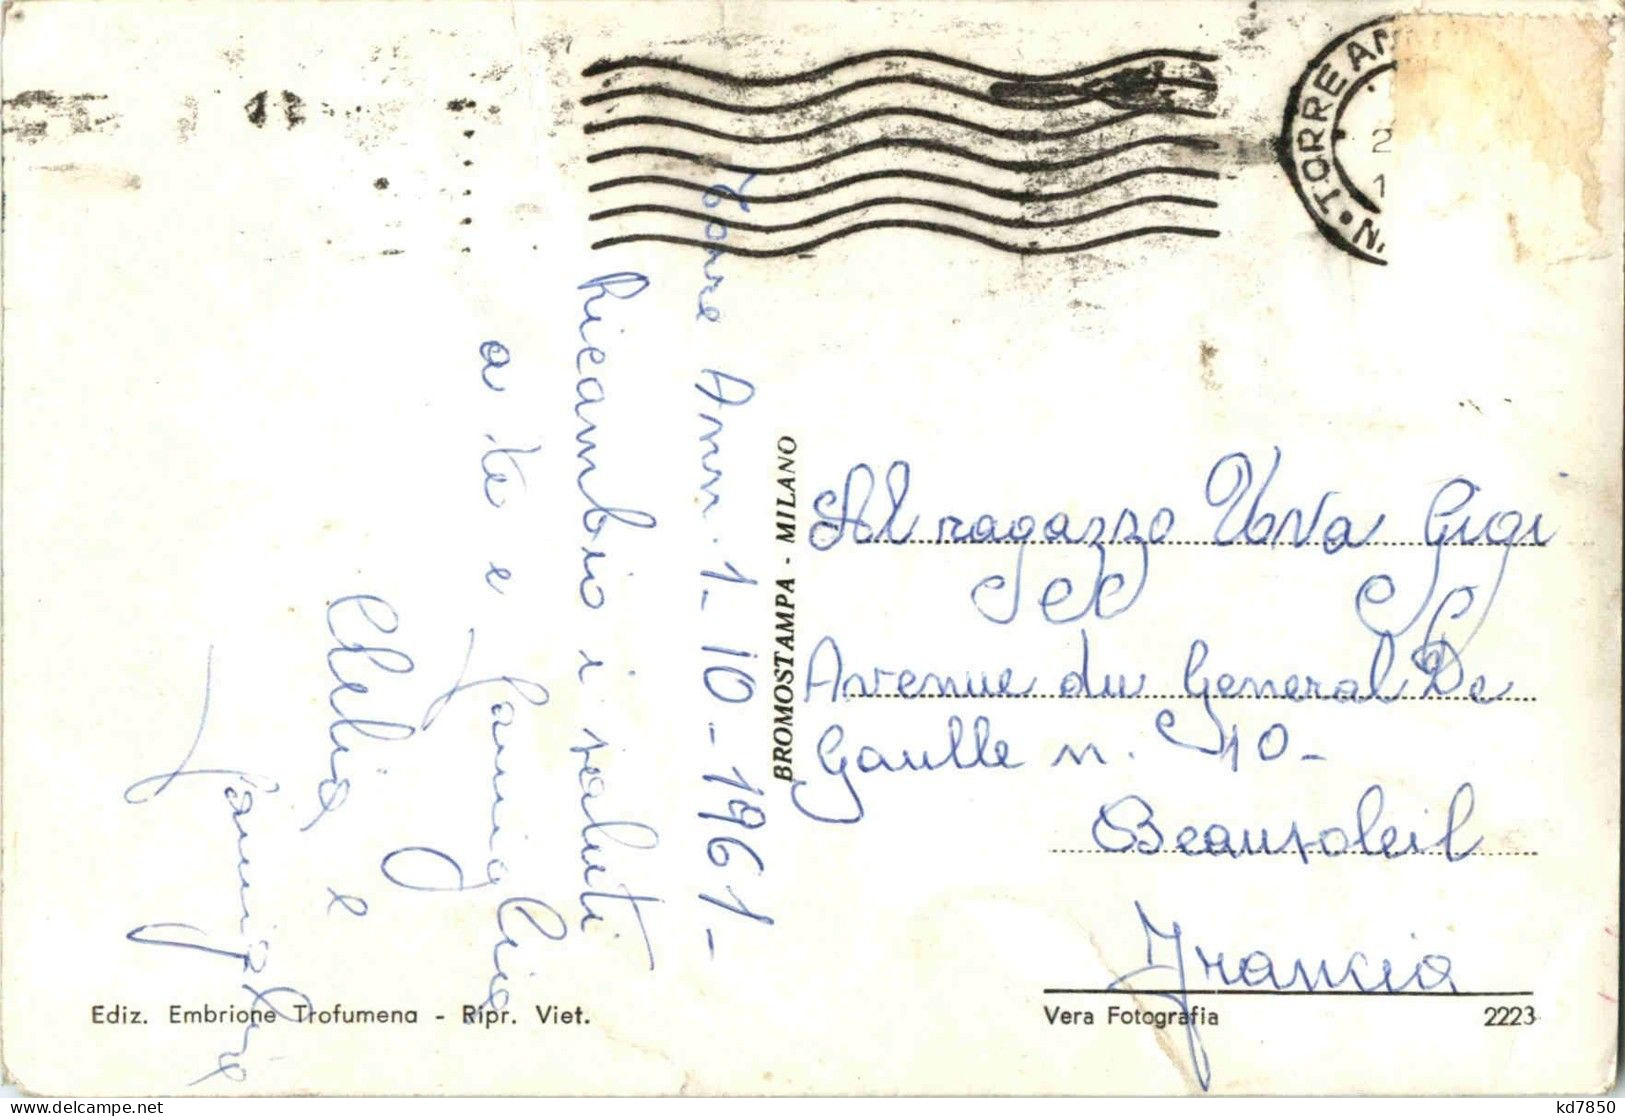 TORRE AN
N.
2
1
Torre Ann. 1-10-1961-
Ricambio i saluti
a te e famiglia
Clelia e
famiglia
BROMOSTAMPA - MILANO
Al ragazzo Gigi
Avenue du General De
Gaulle n. 10-
Beausoleil
Francia
Ediz. Embrione Trofumena - Ripr. Viet.
Vera Fotografia 2223
kd7850